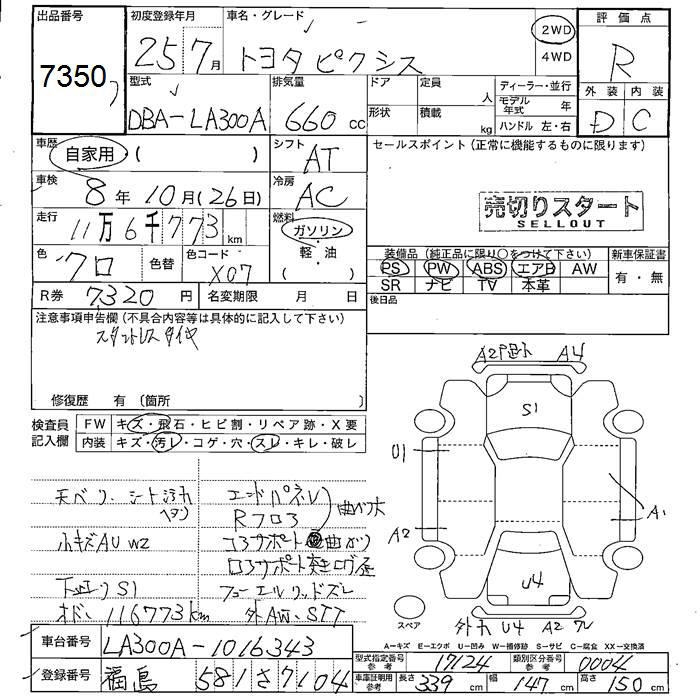 出品番号 初度登録年月 車名・グレード 評価点
7350 25 7月 トヨタピクシス 2WD 4WD R
型式 排気量 ドア 定員 人 ディーラー・並行 外装 内装
DBA-LA300A 660cc 形状 積載 kg モデル年式 年 ハンドル 左・右 D C
車歴 自家用 ( ) シフト AT セールスポイント (正常に機能するものに限ります)
車検 8年10月(26日) 冷房 AC
売切りスタート
SELLOUT
走行 11万6千773km 燃料 ガソリン・軽・油 ( )
色 クロ 色替 色コード X07
装備品 (純正品に限り○をつけて下さい) 新車保証書
PS PW ABS エアB AW 有・無
SR ナビ TV 本革
R券 7,320円 名変期限 月 日 後日品
注意事項申告欄 (不具合内容等は具体的に記入して下さい)
スタットレスタイヤ
修復歴 有 (箇所 )
検査員記入欄 FW キズ・飛石・ヒビ割・リペア跡・X要
内装 キズ・汚レ・コゲ・穴・スレ・キレ・破レ
A2 A4
S1
U1
A2 A1
U4
スペア U4 A2
天ベリ、シート汚れ エンドパネル
ヘタリ Rフロア 曲ガリ大
小キズAU W2 コアサポート曲ガり
コアサポート突き上げ
下廻りS1 フューエルリッドズレ
オド、116773km 外AW、STT
A=キズ E=エクボ U=凹み W=補修跡 S=サビ C=腐食 XX=交換済
車台番号 LA300A-1016343
型式指定番号参考 17124 類別区分番号参考 0004
登録番号 福島 581さ7104
車庫証明用参考 長さ 339cm 幅 147cm 高さ 150cm